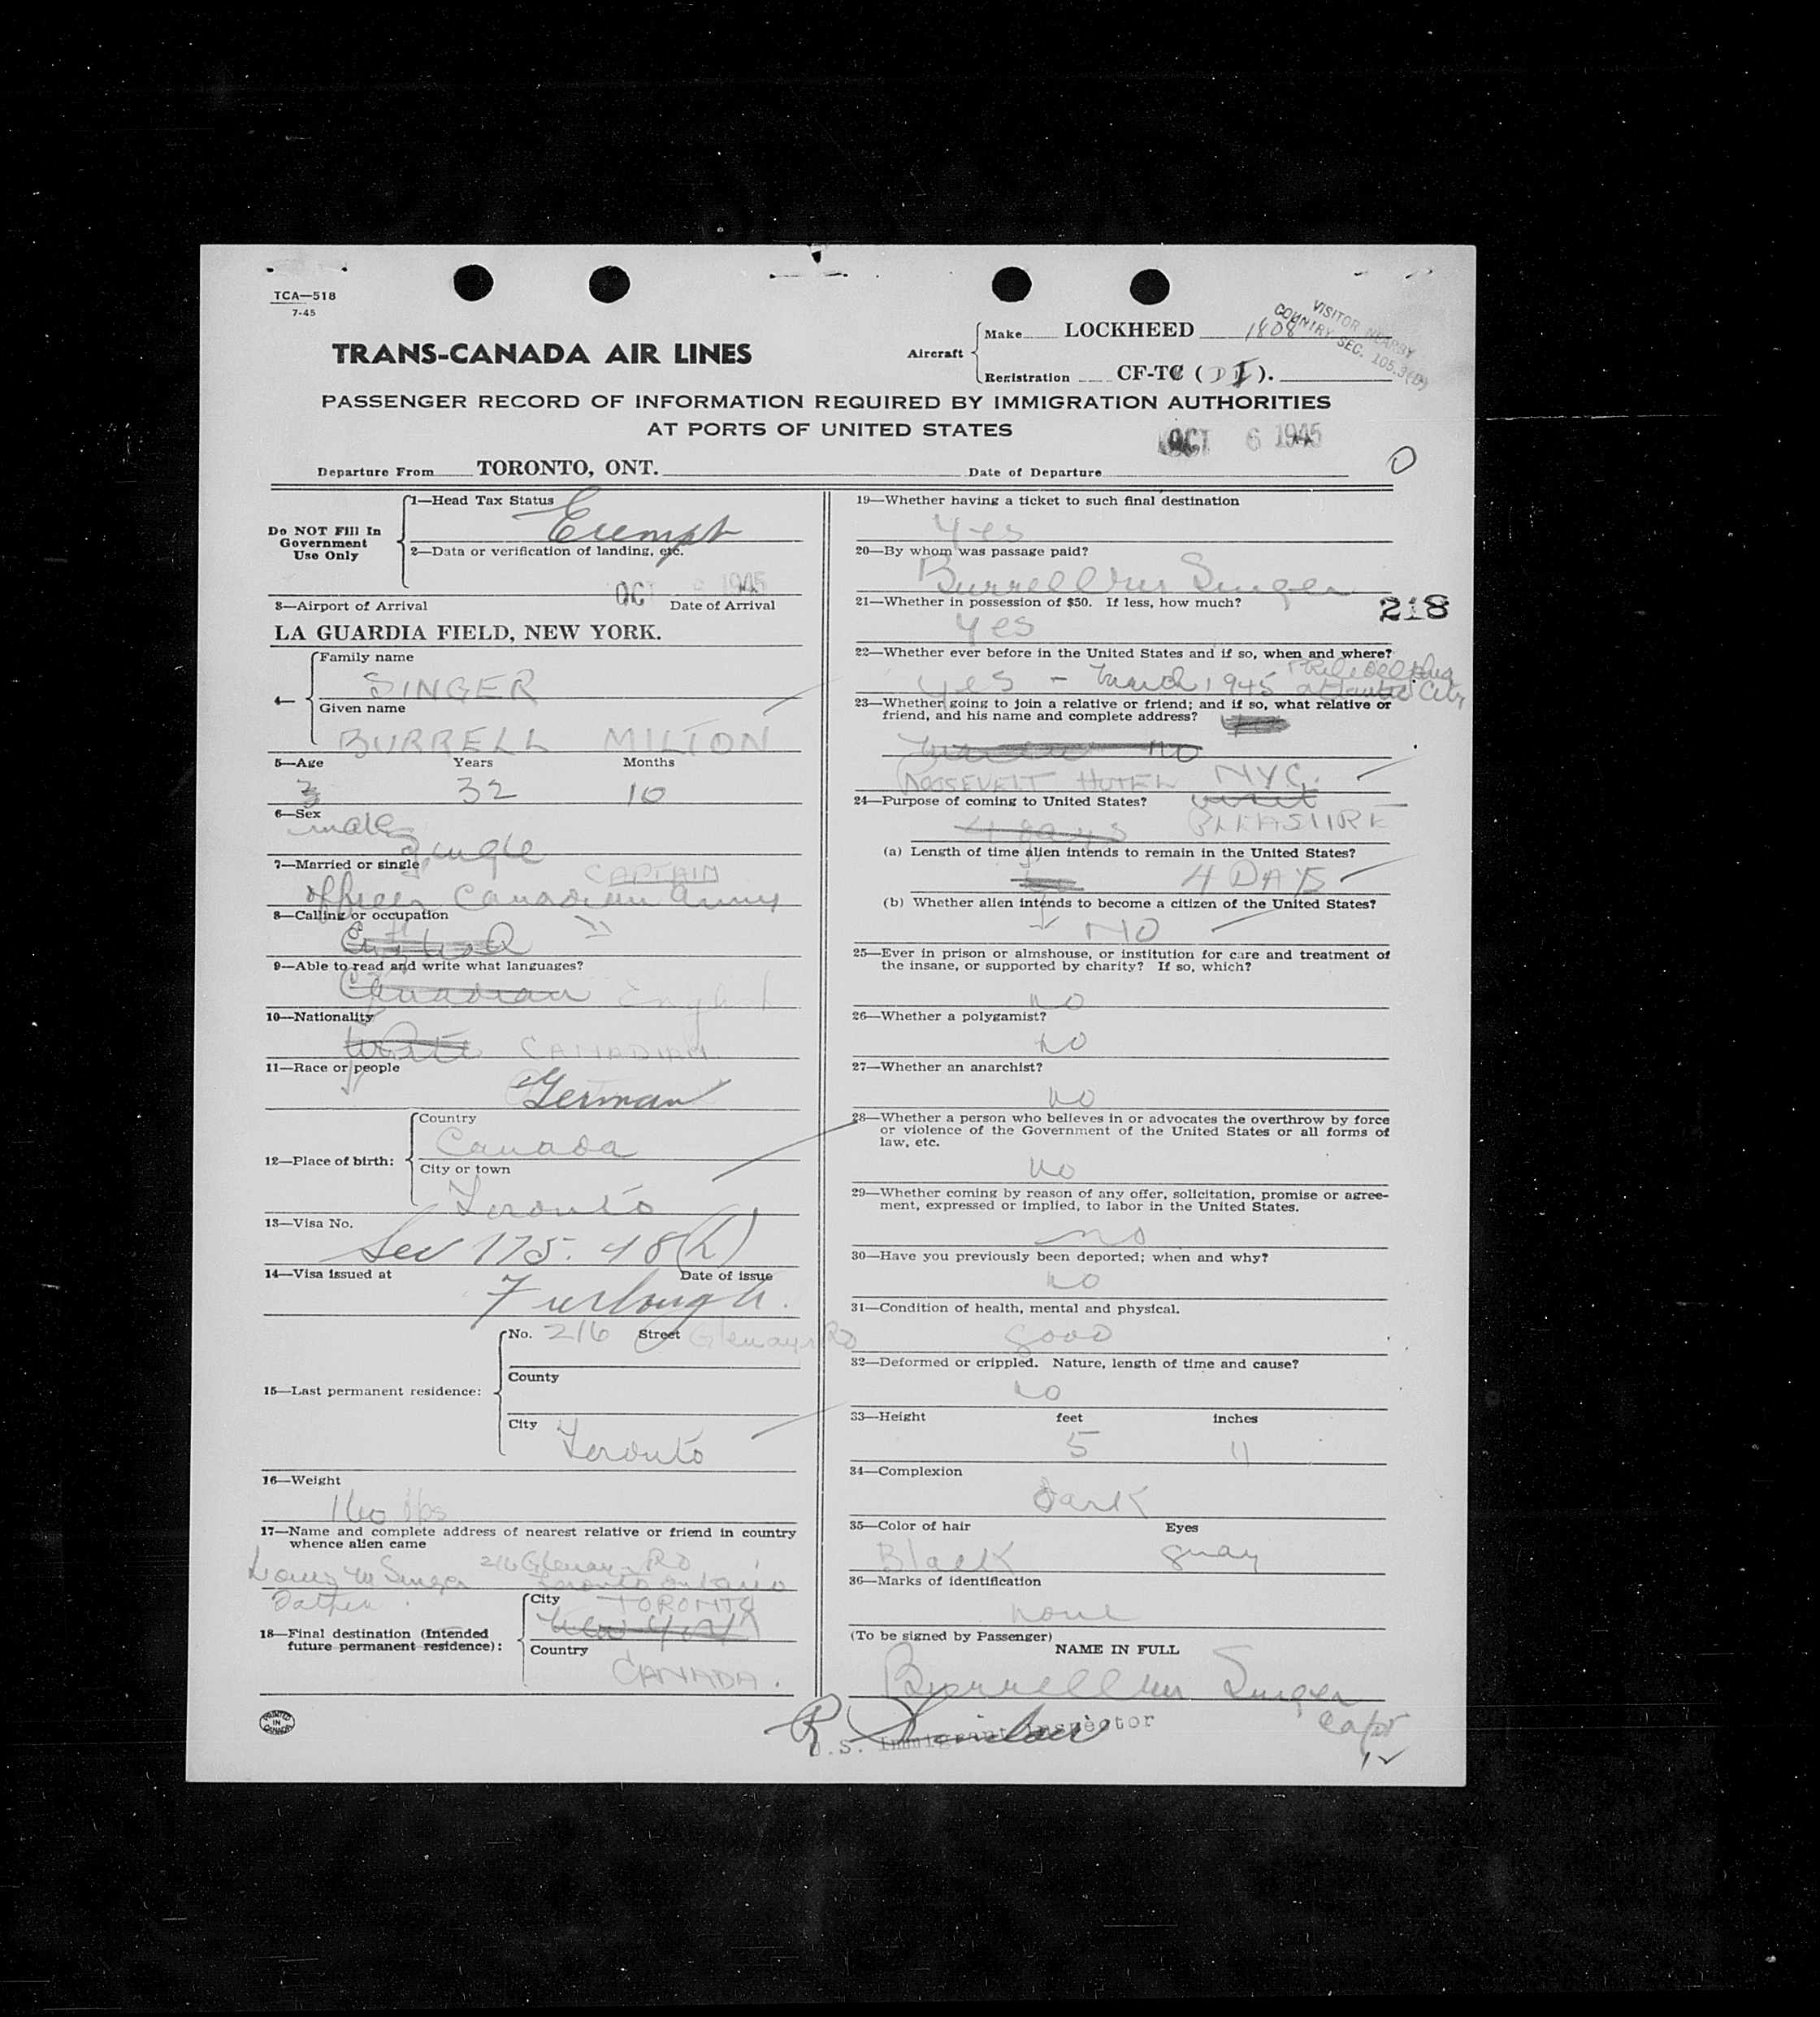 TCA—518
7-45
TRANS-CANADA AIR LINES
Aircraft
Make LOCKHEED 1808
Registration CF-TC ( D I ).
VISITOR NEARBY
COUNTRY SEC. 105.3(D)
PASSENGER RECORD OF INFORMATION REQUIRED BY IMMIGRATION AUTHORITIES
AT PORTS OF UNITED STATES
OCT 6 1945
Departure From TORONTO, ONT. Date of Departure
O
Do NOT Fill In
Government
Use Only
1—Head Tax Status
Exempt
2—Data or verification of landing, etc.
OCT 6 1945
3—Airport of Arrival Date of Arrival
LA GUARDIA FIELD, NEW YORK.
4—
Family name
SINGER
Given name
BURRELL MILTON
5—Age Years Months
32 10
6—Sex
male
single
7—Married or single
CAPTAIN
officer Canadian Army
8—Calling or occupation
English
9—Able to read and write what languages?
Canadian English
10—Nationality
White CANADIAN
11—Race or people
German
12—Place of birth:
Country
Canada
City or town
Toronto
13—Visa No.
Sec 175.48(h)
14—Visa issued at Date of issue
Furlough.
15—Last permanent residence:
No. 216 Street Glenayr Rd
County
City
Toronto
16—Weight
160 lbs
17—Name and complete address of nearest relative or friend in country
whence alien came
Louis M Singer 216 Glenayr Rd
Toronto Ontario
Father.
18—Final destination (Intended
future permanent residence):
City TORONTO
New York
Country
CANADA.
PRINTED
IN
CANADA
19—Whether having a ticket to such final destination
Yes
20—By whom was passage paid?
Burrell M Singer
21—Whether in possession of $50. If less, how much?
218
Yes
22—Whether ever before in the United States and if so, when and where?
Yes – March 1945 Philadelphia
Atlantic City
23—Whether going to join a relative or friend; and if so, what relative or
friend, and his name and complete address?
no
ROOSEVELT HOTEL NYC.
24—Purpose of coming to United States?
visit
4 days PLEASURE
(a) Length of time alien intends to remain in the United States?
4 DAYS
(b) Whether alien intends to become a citizen of the United States?
NO
25—Ever in prison or almshouse, or institution for care and treatment of
the insane, or supported by charity? If so, which?
no
26—Whether a polygamist?
no
27—Whether an anarchist?
no
28—Whether a person who believes in or advocates the overthrow by force
or violence of the Government of the United States or all forms of
law, etc.
no
29—Whether coming by reason of any offer, solicitation, promise or agree-
ment, expressed or implied, to labor in the United States.
no
30—Have you previously been deported; when and why?
no
31—Condition of health, mental and physical.
good
32—Deformed or crippled. Nature, length of time and cause?
no
33—Height feet inches
5 11
34—Complexion
dark
35—Color of hair Eyes
Black gray
36—Marks of identification
none
(To be signed by Passenger)
NAME IN FULL
Burrell M Singer
Capt
U.S. Immigrant Inspector